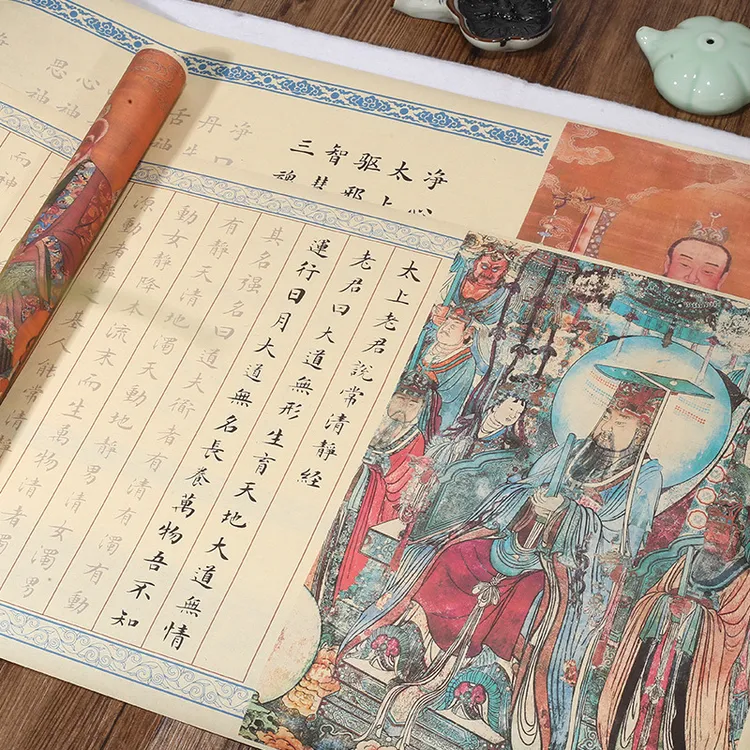 净心
太上
驱邪
智慧
三魂
净口
丹
舌神
心神
思神
净
太上老君說常清靜經
老君曰大道無形生育天地大道無情
運行日月大道無名長養萬物吾不知
其名强名曰道夫道者有清有濁有動
有靜天清地濁天動地靜男清女濁男
動女靜降本流末而生萬物清者濁
源動者靜之基人能常清
而神